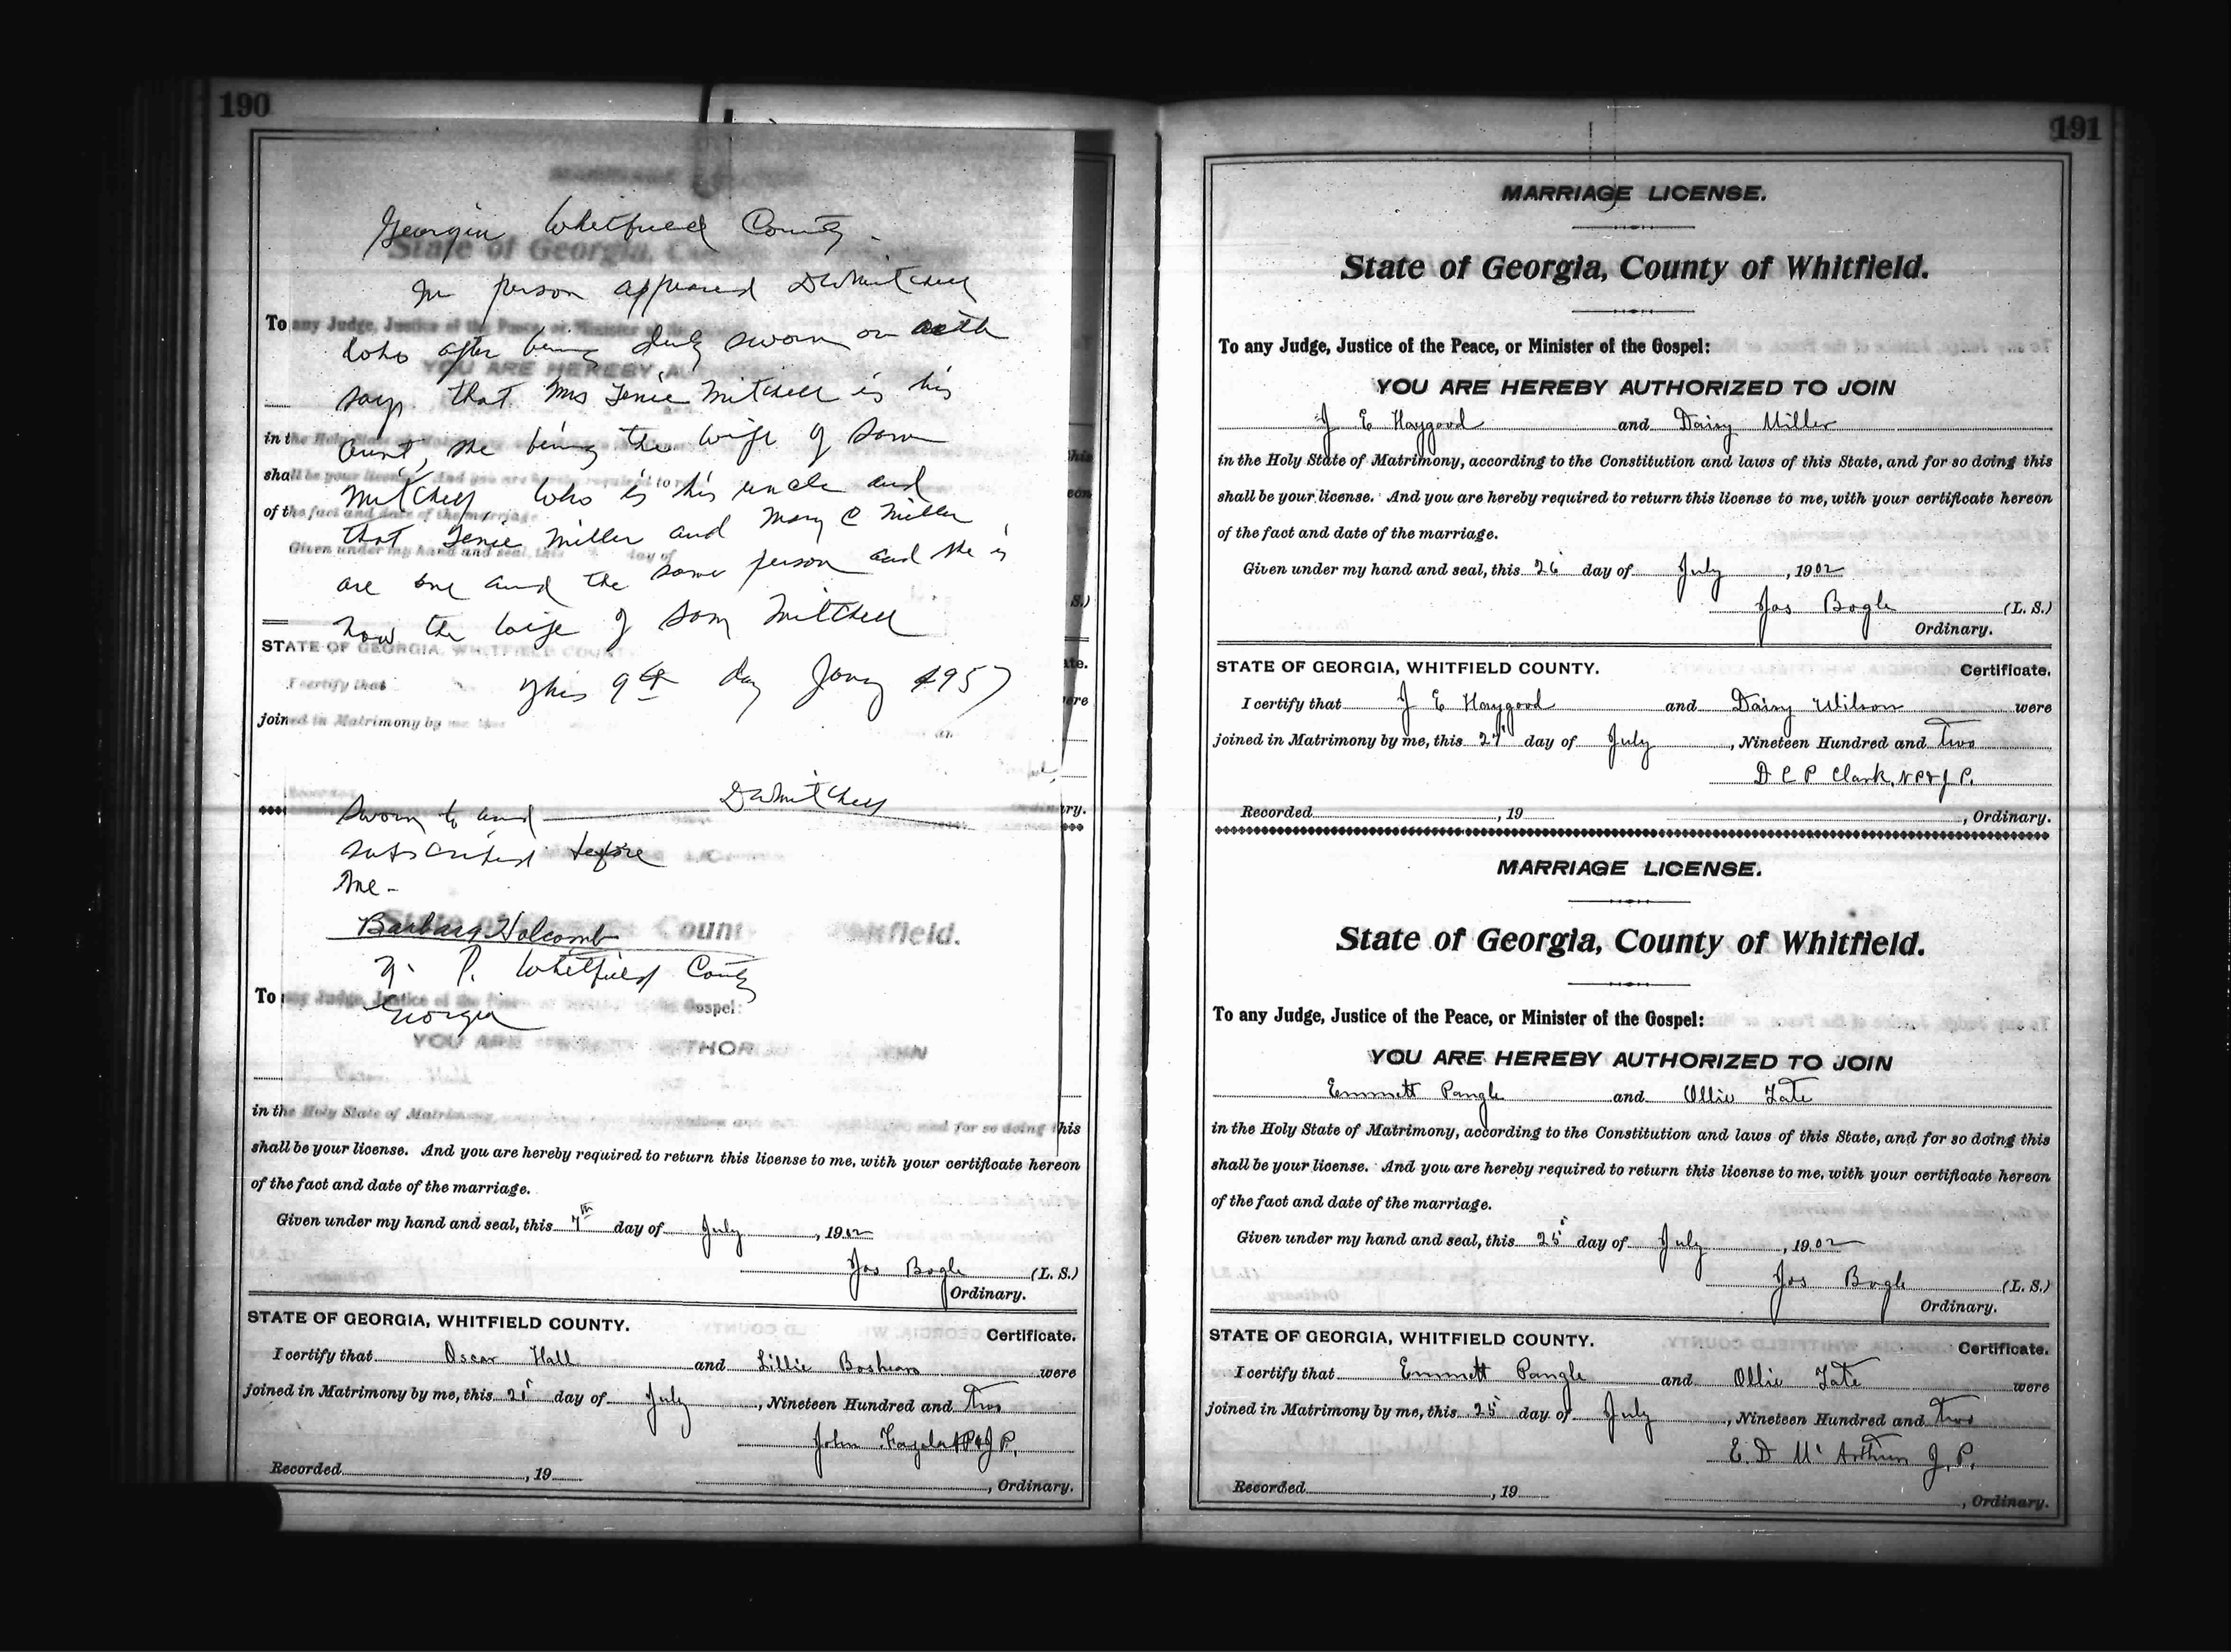 190
Georgia Whitfield County.
In person appeared DW Mitchell
To any Judge, Justice of the Peace, or Minister of the
who after being duly sworn on oath
YOU ARE HEREBY A
says that Mrs Jenie Mitchell is his
in the Holy State of Matrimony,
aunt, she being the wife of Sam
shall be your license. And you are hereby required to re
Mitchell, who is his uncle and
of the fact and date of the marriage
that Jenie Miller and Mary C Miller
Given under my hand and seal, this day of
are one and the same person and she is
now the wife of Sam Mitchell
STATE OF GEORGIA, WHITFIELD COUNTY
I certify that
This 9th day Jany 1957
joined in Matrimony by me, this
DW Mitchell
Sworn to and
subscribed before
me-
State of Count tfield.
Barbara Holcomb
N. P. Whitfield County
To any Judge, Justice of the Gospel:
Georgia
YOU ARE
in the Holy State of Matrimony, and for so doing this
shall be your license. And you are hereby required to return this license to me, with your certificate hereon
of the fact and date of the marriage.
Given under my hand and seal, this 7th day of July, 1902
Jos Bogle (L. S.)
Ordinary.
STATE OF GEORGIA, WHITFIELD COUNTY.
Certificate.
I certify that Oscar Hall and Lillie Boshears were
joined in Matrimony by me, this 25 day of July, Nineteen Hundred and Two
John P & J P.
Recorded , 19 , Ordinary.
191
MARRIAGE LICENSE.
State of Georgia, County of Whitfield.
To any Judge, Justice of the Peace, or Minister of the Gospel:
YOU ARE HEREBY AUTHORIZED TO JOIN
J E Haygood and Daisy Miller
in the Holy State of Matrimony, according to the Constitution and laws of this State, and for so doing this
shall be your license. And you are hereby required to return this license to me, with your certificate hereon
of the fact and date of the marriage.
Given under my hand and seal, this 26 day of July, 1902
Jos Bogle (L. S.)
Ordinary.
STATE OF GEORGIA, WHITFIELD COUNTY.
Certificate.
I certify that J E Haygood and Daisy Wilson were
joined in Matrimony by me, this 27 day of July, Nineteen Hundred and Two
D C P Clark, N P & J P.
Recorded , 19 , Ordinary.
MARRIAGE LICENSE.
State of Georgia, County of Whitfield.
To any Judge, Justice of the Peace, or Minister of the Gospel:
YOU ARE HEREBY AUTHORIZED TO JOIN
Emmett Pangle and Ollie Tate
in the Holy State of Matrimony, according to the Constitution and laws of this State, and for so doing this
shall be your license. And you are hereby required to return this license to me, with your certificate hereon
of the fact and date of the marriage.
Given under my hand and seal, this 25 day of July, 1902
Jos Bogle (L. S.)
Ordinary.
STATE OF GEORGIA, WHITFIELD COUNTY.
Certificate.
I certify that Emmett Pangle and Ollie Tate were
joined in Matrimony by me, this 25 day of July, Nineteen Hundred and Two
E. D McArthur J. P.
Recorded , 19 , Ordinary.